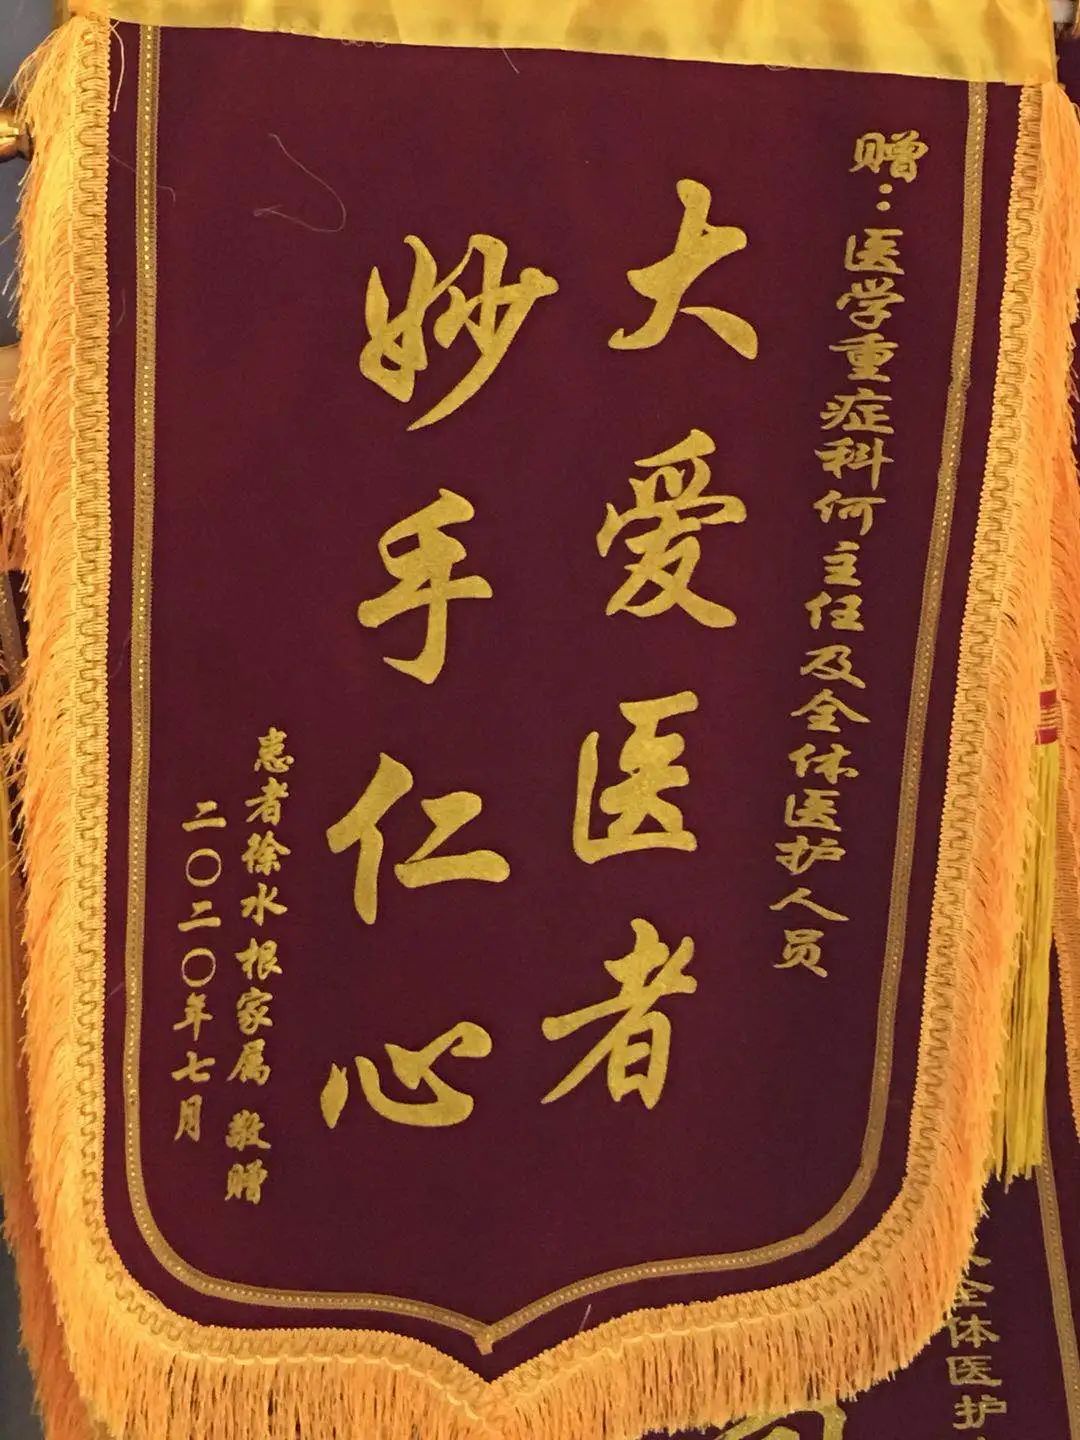 赠：医学重症科何主任及全体医护人员
大爱医者
妙手仁心
患者徐水根家属 敬赠
二〇二〇年七月
全体医护